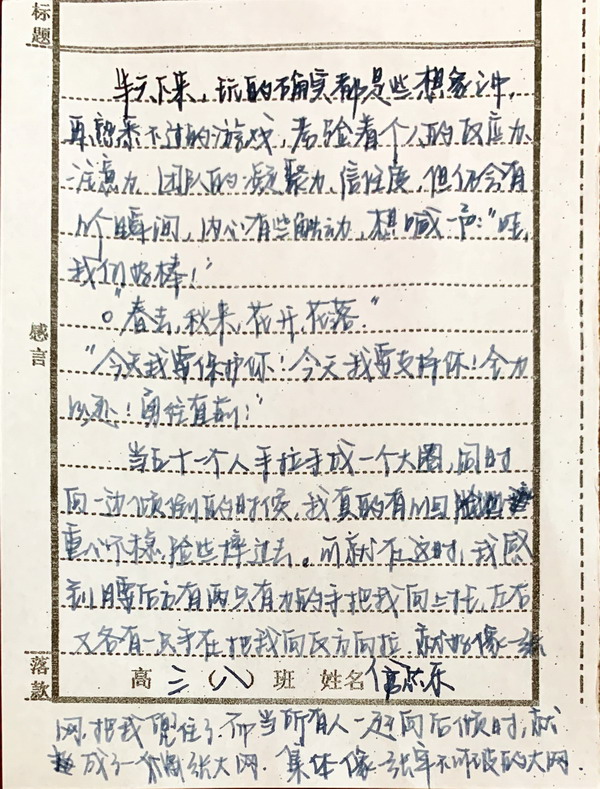 标题
半天下来，玩的确实都是些想象之中，
再熟悉不过的游戏，考验着个人的反应力、
注意力，团队的凝聚力、信任度，但仍会有
几个瞬间，内心有些触动，想喊一声："哇，
我们好棒！"
"春去，秋来，花开，花落。"
感言
"今天我要保护你！今天我要支持你！全力
以赴！勇往直前！"
当五十一个人手拉手成一个大圈，同时
向一边倾倒的时候，我真的有
重心不稳，险些摔过去。可就在这时，我感
到腰后方有两只有力的手把我向上托，左右
又各有一只手在把我向反方向拉，就好像一张
落款
高三（八）班 姓名
网，把我兜住了。而当所有人一起向后倾时，就
成了一张大网。集体像一张牢不可破的大网.